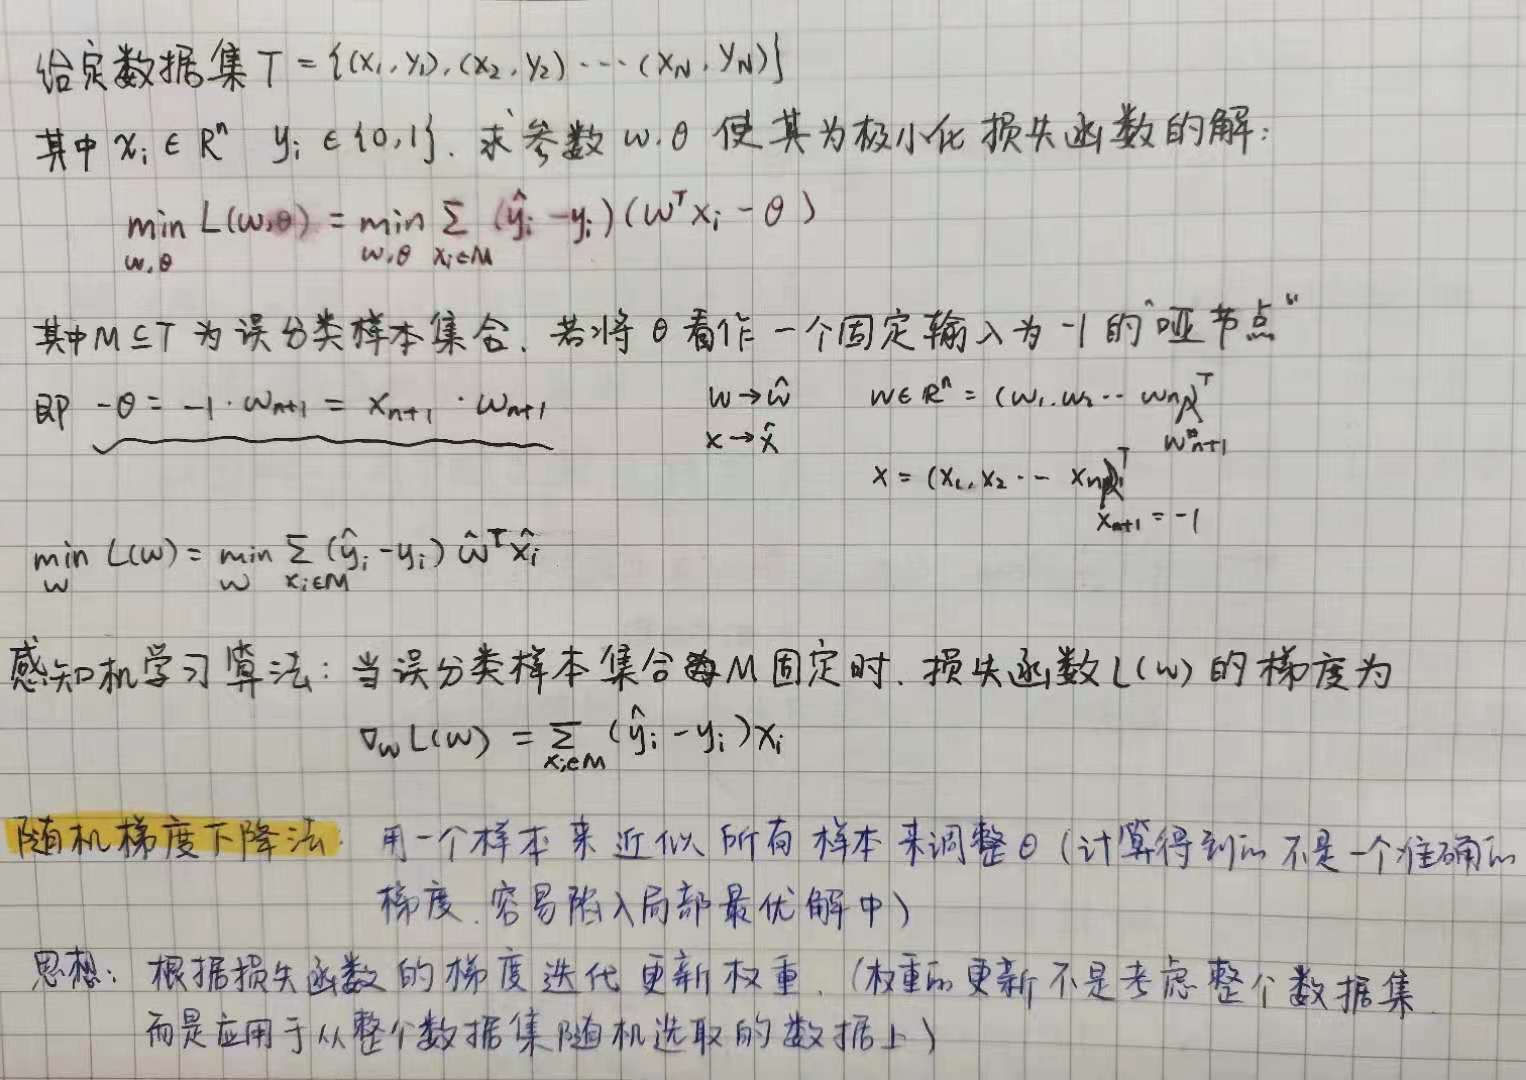 给定数据集 T = {(x₁, y₁), (x₂, y₂) ··· (x_N, y_N)}
其中 xᵢ ∈ Rⁿ yᵢ ∈ {0,1}. 求参数 w.θ 使其为极小化损失函数的解:
min_{w,θ} L(w,θ) = min_{w,θ} Σ_{xᵢ∈M} (ŷᵢ - yᵢ)(wᵀxᵢ - θ)
其中 M ⊆ T 为误分类样本集合. 若将 θ 看作一个固定输入为 -1 的“哑节点”
即 -θ = -1 · w_{n+1} = x_{n+1} · w_{n+1}
w → ŵ
x → x̂
w ∈ Rⁿ = (w₁, w₂ ·· w_n)ᵀ
w_{n+1}
x = (x₁, x₂ ·· x_n)ᵀ
x_{n+1} = -1
min_w L(w) = min_w Σ_{xᵢ∈M} (ŷᵢ - yᵢ) ŵᵀx̂ᵢ
感知机学习算法: 当误分类样本集合 M 固定时. 损失函数 L(w) 的梯度为
∇_w L(w) = Σ_{xᵢ∈M} (ŷᵢ - yᵢ)xᵢ
随机梯度下降法: 用一个样本来近似所有样本来调整θ (计算得到的不是一个准确的
梯度. 容易陷入局部最优解中)
思想: 根据损失函数的梯度迭代更新权重. (权重的更新不是考虑整个数据集
而是应用于从整个数据集随机选取的数据上)